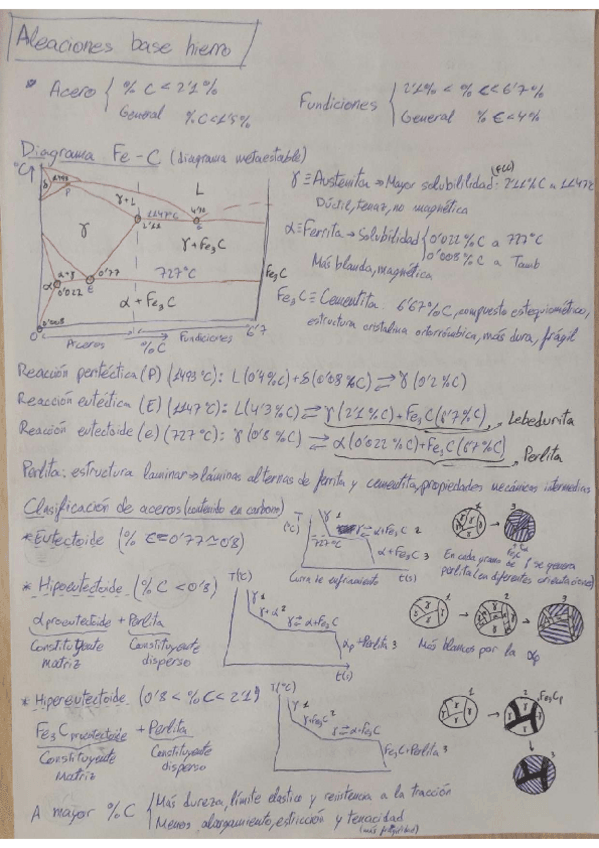 Aleaciones base hierro
* Acero { % C < 2'1% Fundiciones { 2'1% < % C < 6'7%
General %C<1'5% General % C<4%
Diagrama Fe-C (diagrama metaestable)
ºC
δ 1493
P
L
γ+L
1147ºC
4'3
2'11
γ
γ+Fe3C
α+γ
0'77
727ºC
Fe3C
α
0'022
E
α+Fe3C
0'008
0
6'7
Aceros
%C
Fundiciones
γ ≡ Austenita → Mayor solubilidad: 2'11%C a 1147ºC
(FCC)
Dúctil, tenaz, no magnética
α ≡ Ferrita → Solubilidad { 0'022 %C a 727ºC
0'008 %C a Tamb
Más blanda, magnética
Fe3C ≡ Cementita. 6'67%C, compuesto estequiométrico,
estructura cristalina ortorrómbica, más dura, frágil
Reacción peritéctica (P) (1493ºC): L(0'4%C)+δ(0'08%C) ⇄ γ(0'2%C)
Reacción eutéctica (E) (1147ºC): L(4'3%C) ⇄ γ(2'1%C)+Fe3C(6'7%C) → Ledeburita
Reacción eutectoide (e) (727ºC): γ(0'8%C) ⇄ α(0'022%C)+Fe3C(6'7%C) → Perlita
Perlita: estructura laminar → láminas alternas de ferrita y cementita, propiedades mecánicas intermedias
Clasificación de aceros (contenido en carbono)
* Eutectoide (% C = 0'77 ≈ 0'8)
T
(ºC)
γ 1
γ⇄α+Fe3C 2
727ºC
α+Fe3C 3
Curva de enfriamiento t(s)
1
3
α+Fe3C
En cada grano de γ se genera
perlita (en diferentes orientaciones)
* Hipoeutectoide (% C < 0'8)
α proeutectoide + Perlita
Constituyente Constituyente
matriz disperso
T(ºC)
γ 1
γ+α 2
γ⇄α+Fe3C
αp+Perlita 3
t(s)
1
2
3
Más blancos por la αp
* Hipereutectoide (0'8 < %C < 2'1)
Fe3C proeutectoide + Perlita
Constituyente Constituyente
Matriz disperso
T(ºC)
γ 1
γ+Fe3C 2
γ⇄α+Fe3C
Fe3C+Perlita 3
1
2
Fe3Cp
3
A mayor %C { Más dureza, límite elástico y resistencia a la tracción
Menos, alargamiento, estricción y tenacidad
(más fragilidad)